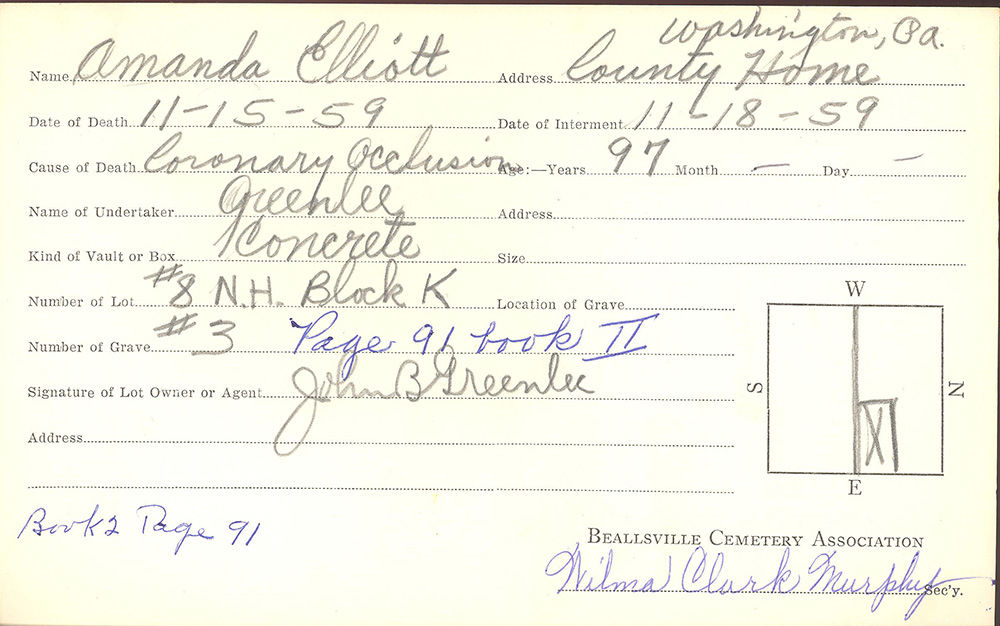 Washington, Pa.
Name Amanda Elliott Address County Home
Date of Death 11-15-59 Date of Interment 11-18-59
Cause of Death Coronary Occlusion Age:—Years 97 Month — Day —
Name of Undertaker Greenlee Address
Kind of Vault or Box Concrete Size
Number of Lot #8 N.H. Block K Location of Grave
Number of Grave #3 Page 91 book II
Signature of Lot Owner or Agent John B Greenlee
Address
W
S
N
X
E
Book 2 Page 91
BEALLSVILLE CEMETERY ASSOCIATION
Wilma Clark Murphy Sec'y.